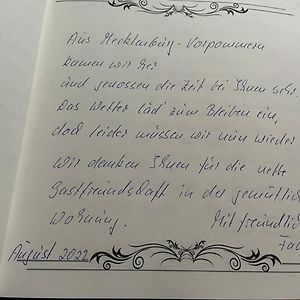 Aus Mecklenburg-Vorpommern
kamen wir her
und genossen die Zeit bei Ihnen sehr.
Das Wetter läd' zum Bleiben ein,
doch leider müssen wir nun wieder
Wir danken Ihnen für die nette
Gastfreundschaft in der gemütlich
Wohnung. Mit freundlich
August 2022